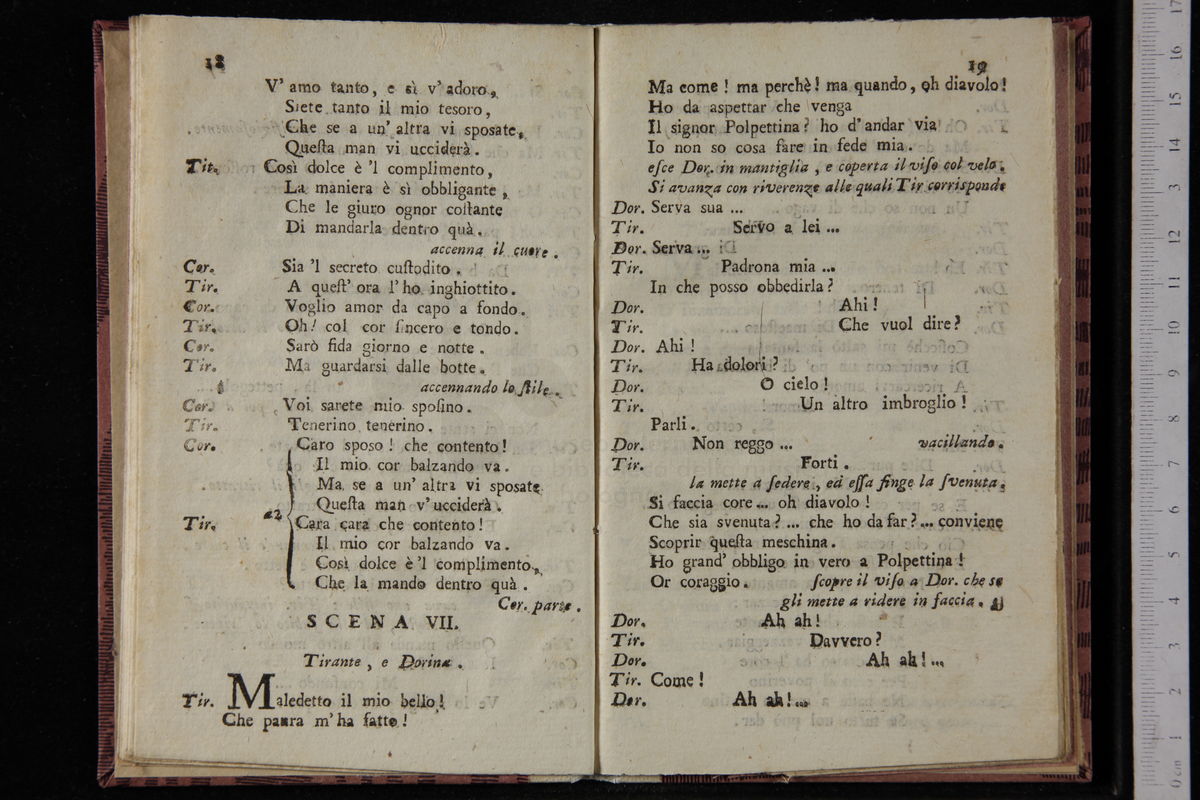 18
V' amo tanto, e sì v' adoro,
Siete tanto il mio tesoro,
Che se a un' altra vi sposate,
Queſta man vi ucciderà.
Tir. Così dolce è 'l complimento,
La maniera è sì obbligante,
Che le giuro ognor coſtante
Di mandarla dentro quà.
accenna il cuore.
Cor. Sia 'l secreto cuſtodito.
Tir. A queſt' ora l' ho inghiottito.
Cor. Voglio amor da capo a fondo.
Tir. Oh! col cor ſincero e tondo.
Cor. Sarò fida giorno e notte.
Tir. Ma guardarsi dalle botte.
accennando lo ſtile.
Cor. Voi sarete mio spoſino.
Tir. Tenerino tenerino.
Cor. Caro sposo! che contento!
Il mio cor balzando va.
Ma se a un' altra vi sposate
Queſta man v' ucciderà.
a2
Tir. Cara cara che contento!
Il mio cor balzando va.
Così dolce è 'l complimento,
Che la mando dentro quà.
Cor. parte.
SCENA VII.
Tirante, e Dorina.
Tir. Maledetto il mio bello!
Che paura m' ha fatto!
19
Ma come! ma perchè! ma quando, oh diavolo!
Ho da aspettar che venga
Il signor Polpettina? ho d' andar via!
Io non so cosa fare in fede mia.
eſce Dor. in mantiglia, e coperta il viſo col velo.
Si avanza con riverenze alle quali Tir corrisponde
Dor. Serva sua ...
Tir. Servo a lei ...
Dor. Serva ...
Tir. Padrona mia ...
In che posso obbedirla?
Dor. Ahi!
Tir. Che vuol dire?
Dor. Ahi!
Tir. Ha dolori?
Dor. O cielo!
Tir. Un altro imbroglio!
Parli.
Dor. Non reggo ... vacillando.
Tir. Forti.
la mette a ſedere, ed eſſa finge la ſvenuta.
Si faccia core ... oh diavolo!
Che sia svenuta? ... che ho da far? ... conviene
Scoprir queſta meschina.
Ho grand' obbligo in vero a Polpettina!
Or coraggio. ſcopre il viſo a Dor. che se
gli mette a ridere in faccia.
Dor. Ah ah!
Tir. Davvero?
Dor. Ah ah! ...
Tir. Come!
Dor. Ah ah! ...